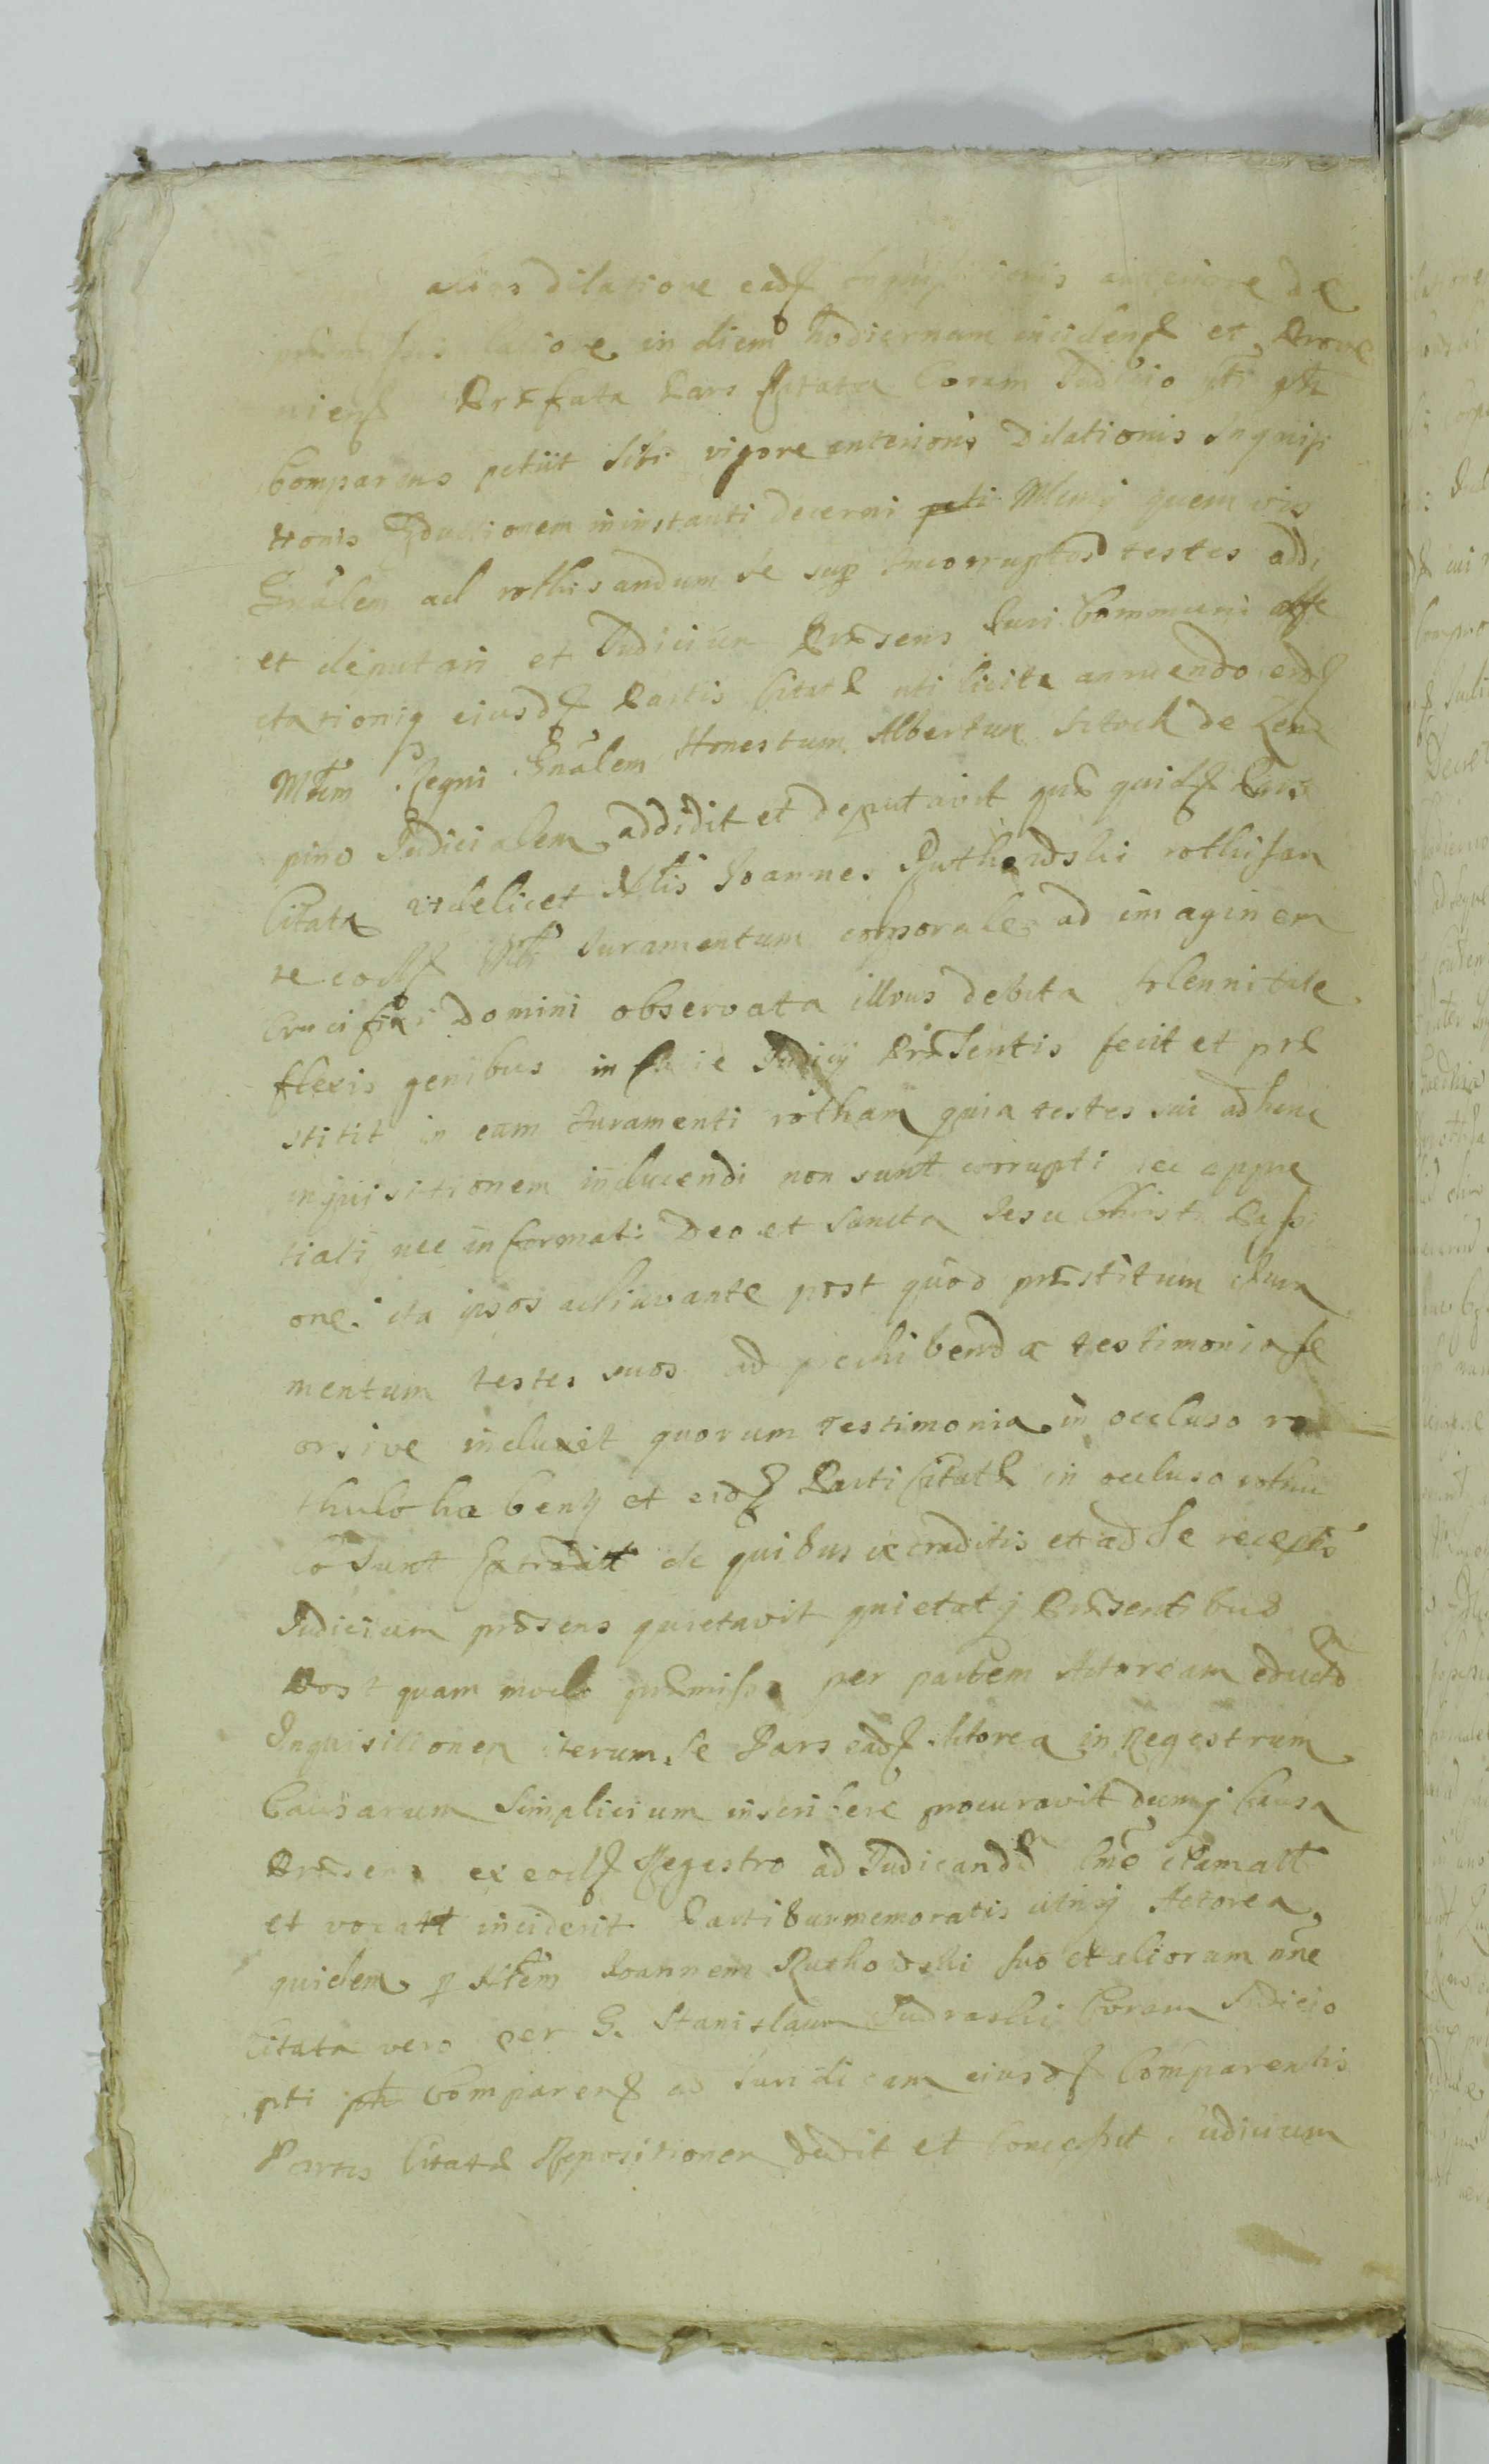 alias dilatione ead anteriore de
latione in diem hodiernam inciden et Prove
nien Præfata Pars Citata Coram Judicio
Comparens petiit sibi vigore anterioris Dilationis Inquisi
tionis Eductionem in instanti decerni Mlemq quemvis
Gnãlem ad rothisandum se sup incorruptos testes addi
et deputari et Judicium Præsens Juri Communi
ctationiq eiusd Partis Citatæ uti licitæ annuendo eid
Mlem Regni Gnãlem Honestum Albertum de
pino Judicialem addidit et deputavit quæ quid Pars
Citata videlicet Nlis Joannes Ruthowski rothisan
te eod Mli Juramentum corporale ad imaginem
Crucifixi Domini observata illius debita solennitate
flexis genibus in facie Judicij Præsentis fecit et præ
stitit in eam Juramenti rotham quia testes sui ad hanc
inquisitionem inducendi non sunt corrupti nec appre
tiati nec informati Deo et Sancta Jesu Christi Passi
one ita ipsos adiuvante post quod præstitum Jura
mentum testes suos ad perhibenda testimonia se
orsive induxit quorum testimonia in occluso ro
thulo haben et eid Parti Citatæ in occluso rothu
lo sunt Extradit de quibus extraditis et ad se receptis
Judicium præsens quietavit quietatq Præsentibus
Post quam modo præmisso per partem Actoream eductã
Inquisitionem iterum se Pars ead Actorea in Regestrum
Causarum Simplicium inscribere procuravit dumq Causa
Præsens ex eod Regestro ad Judicand clamat
et vocat inciderit Partibus memoratis utrisq Actorea
quidem p Nlem Joannem Ruthowski suo et aliorum nne
Citata vero per G. Stanislaum Judicio
pti Comparen ad Juridicam eiusd Comparentis
Partis Citatæ Repositionem dedit et concessit Judicium